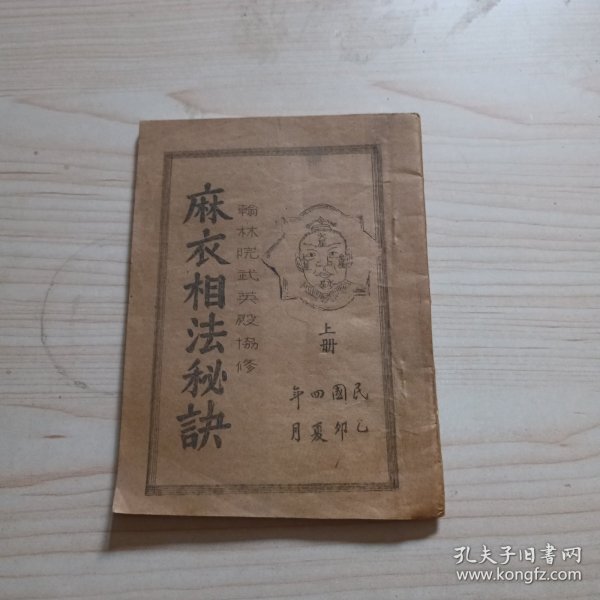 麻衣相法秘訣
翰林院武英殿協修
上册
民國四年
乙卯夏月
孔夫子旧書网
www.kongfz.com